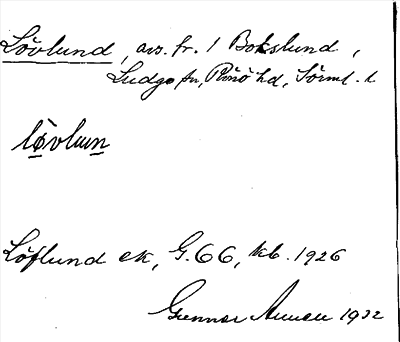 Lövlund, avs. fr. 1 Bokslund,
Ludgo sn, Rönö hd, Sörml. l
lövlun
Löflund ek, G.66, kb. 1926
Gunnar Annell 1932